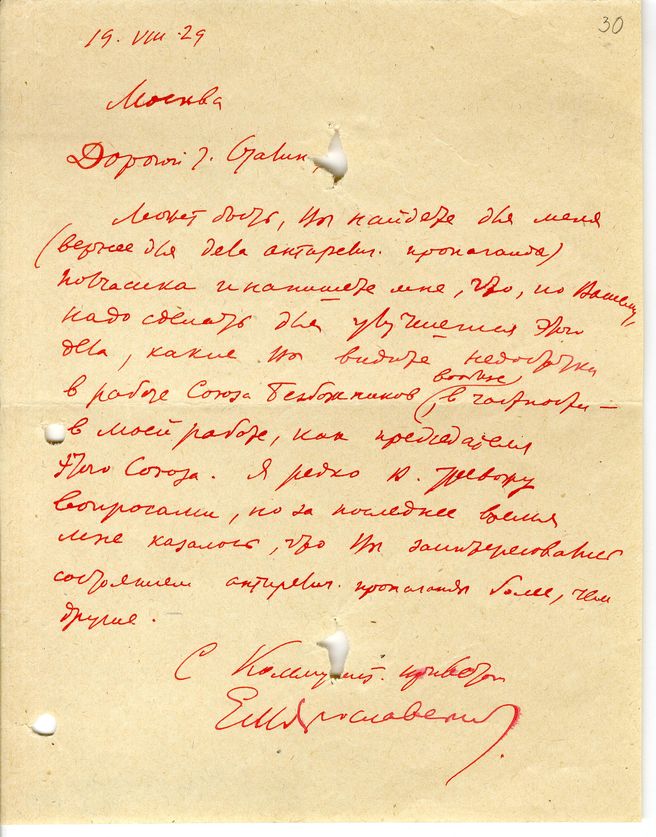 30
19. VIII. 29
Москва
Дорогой т. Сталин,
Может быть, Вы найдете для меня
(вернее для дела антирелиг. пропаганды)
полчаса и напишете мне, что, по Вашему,
надо сделать для улучшения этого
дела, какие Вы видите недостатки
в работе Союза Безбожников вообще, в частности –
в моей работе, как председателя
этого Союза. Я редко В. тревожу
вопросами, но за последнее время
мне казалось, что Вы заинтересовались
состоянием антирелиг. пропаганды более, чем
другие.
С Коммунист. приветом
Ем Ярославский